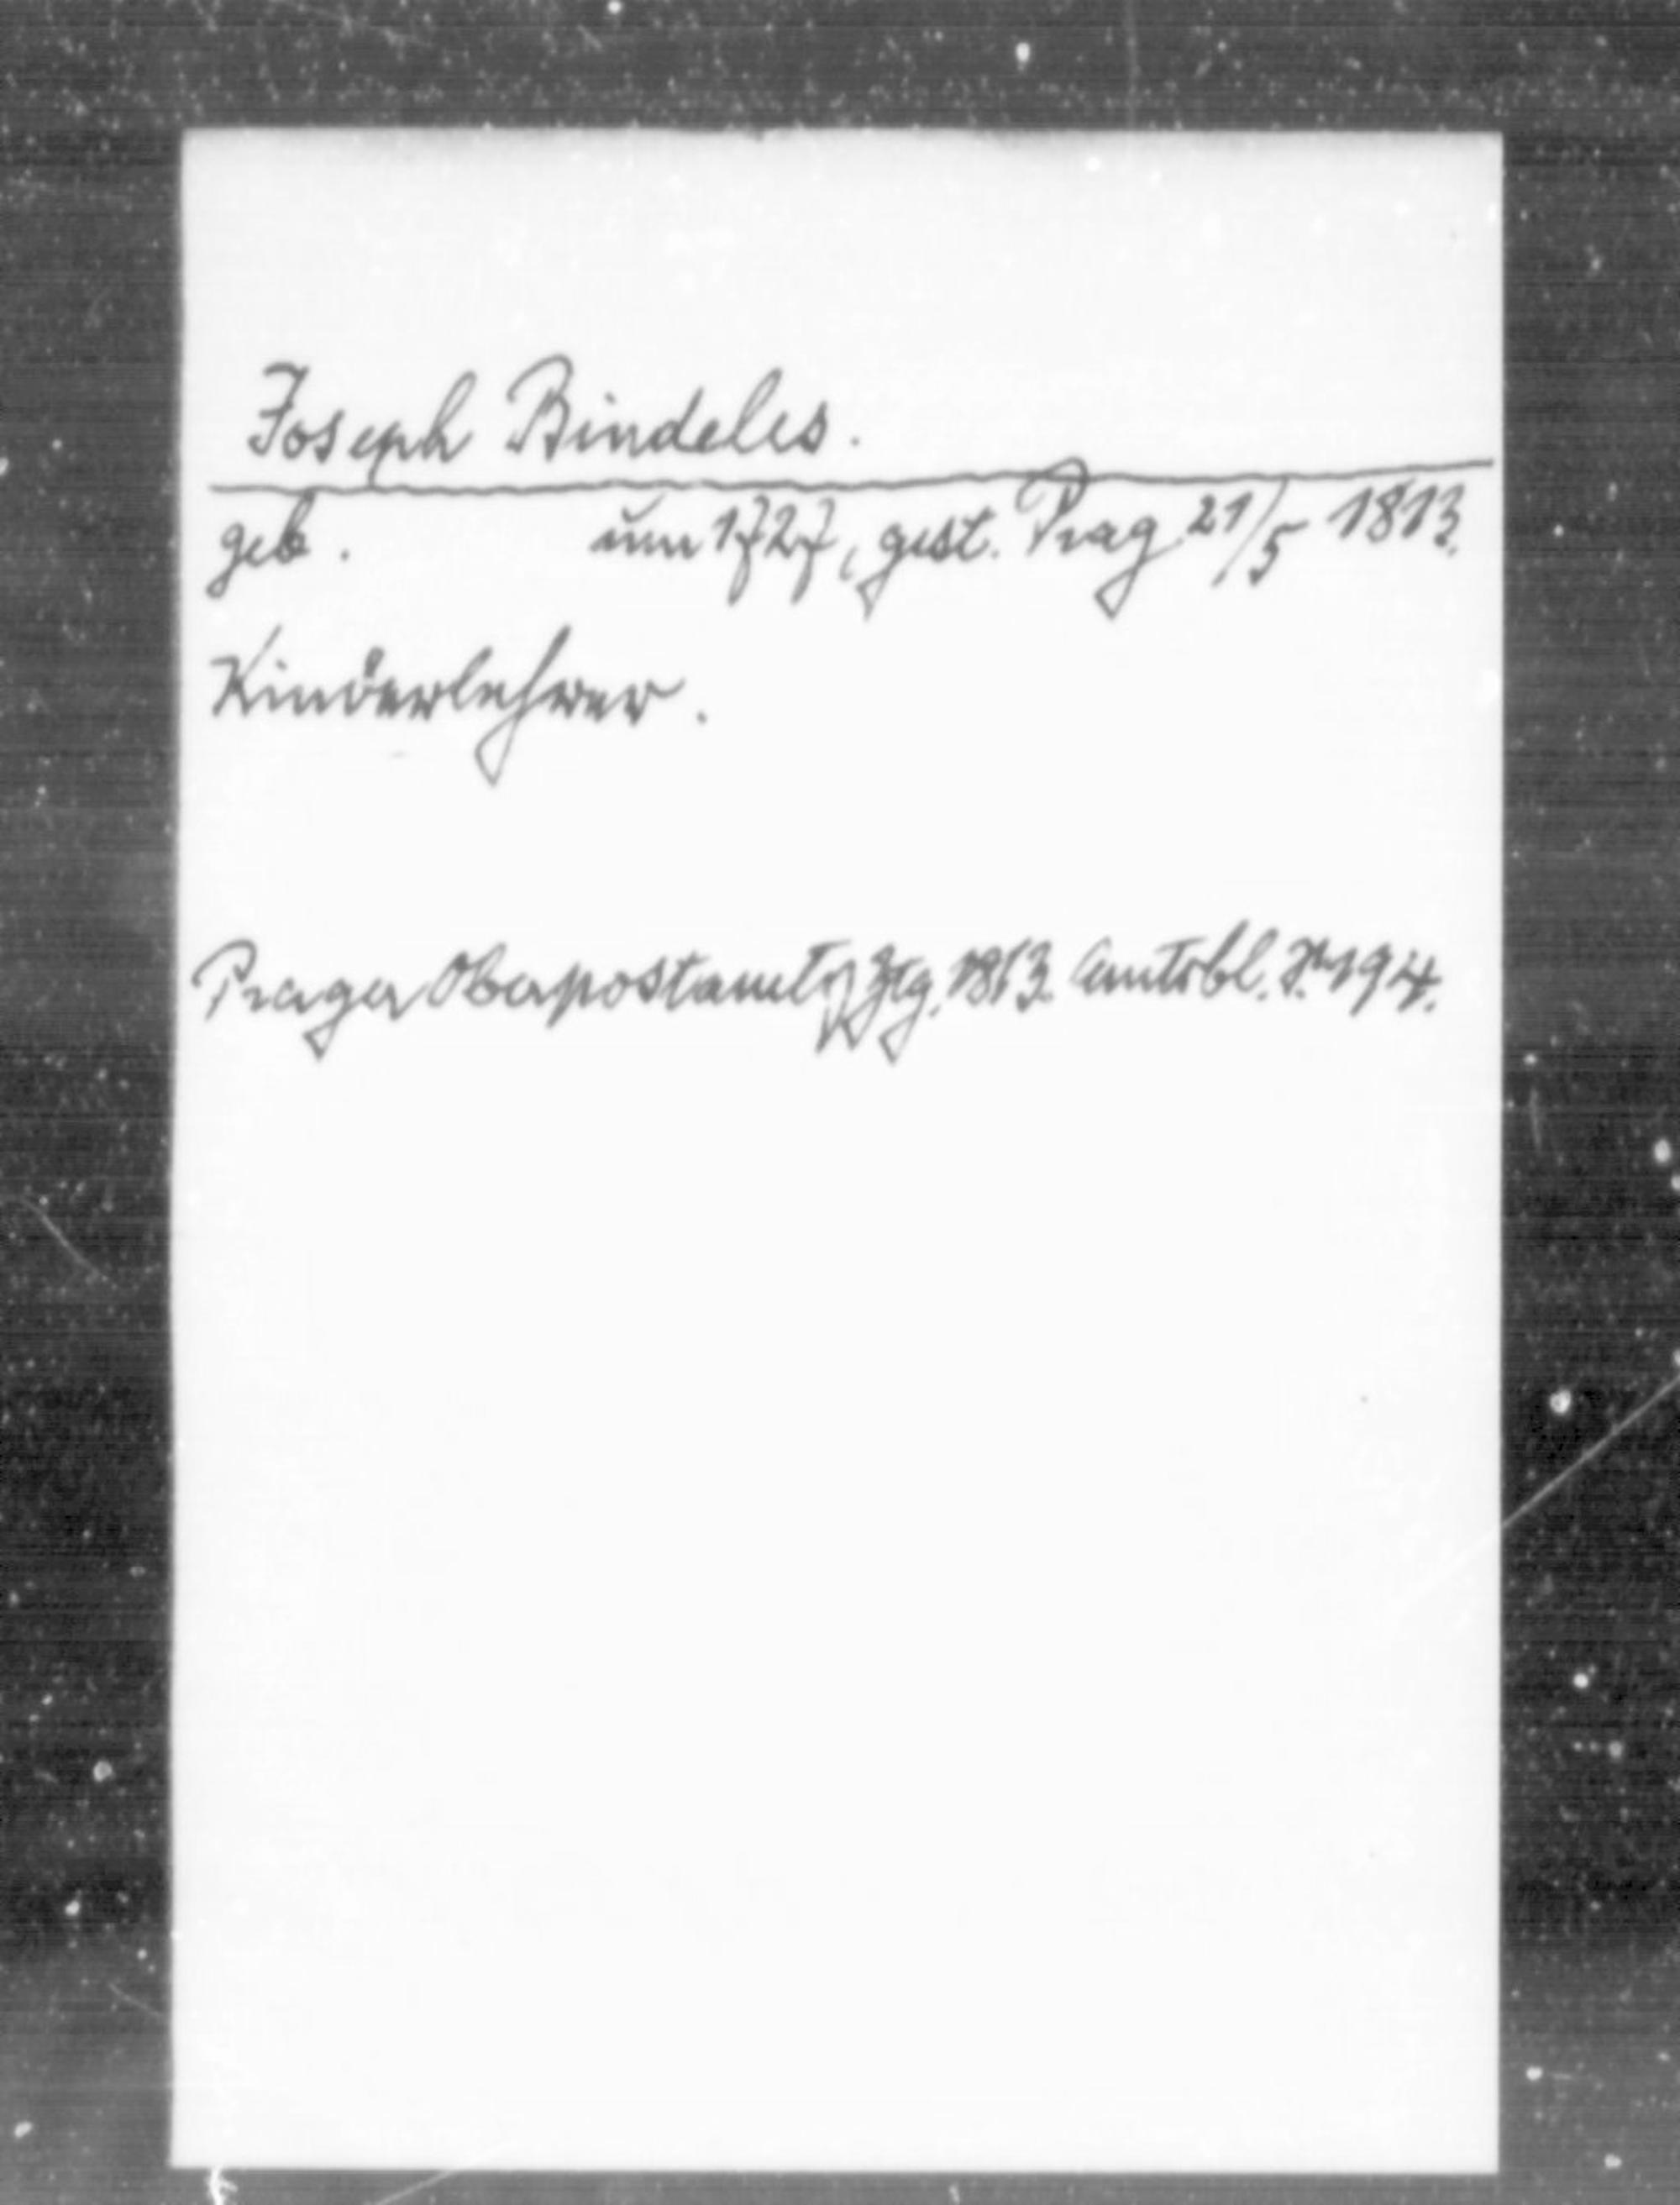 Joseph Bindeles.
geb. um 1727, gest. Prag 21/5 1813.
Kinderlehrer.
Prager Oberpostamts Ztg. 1813. Amtsbl. S. 194.